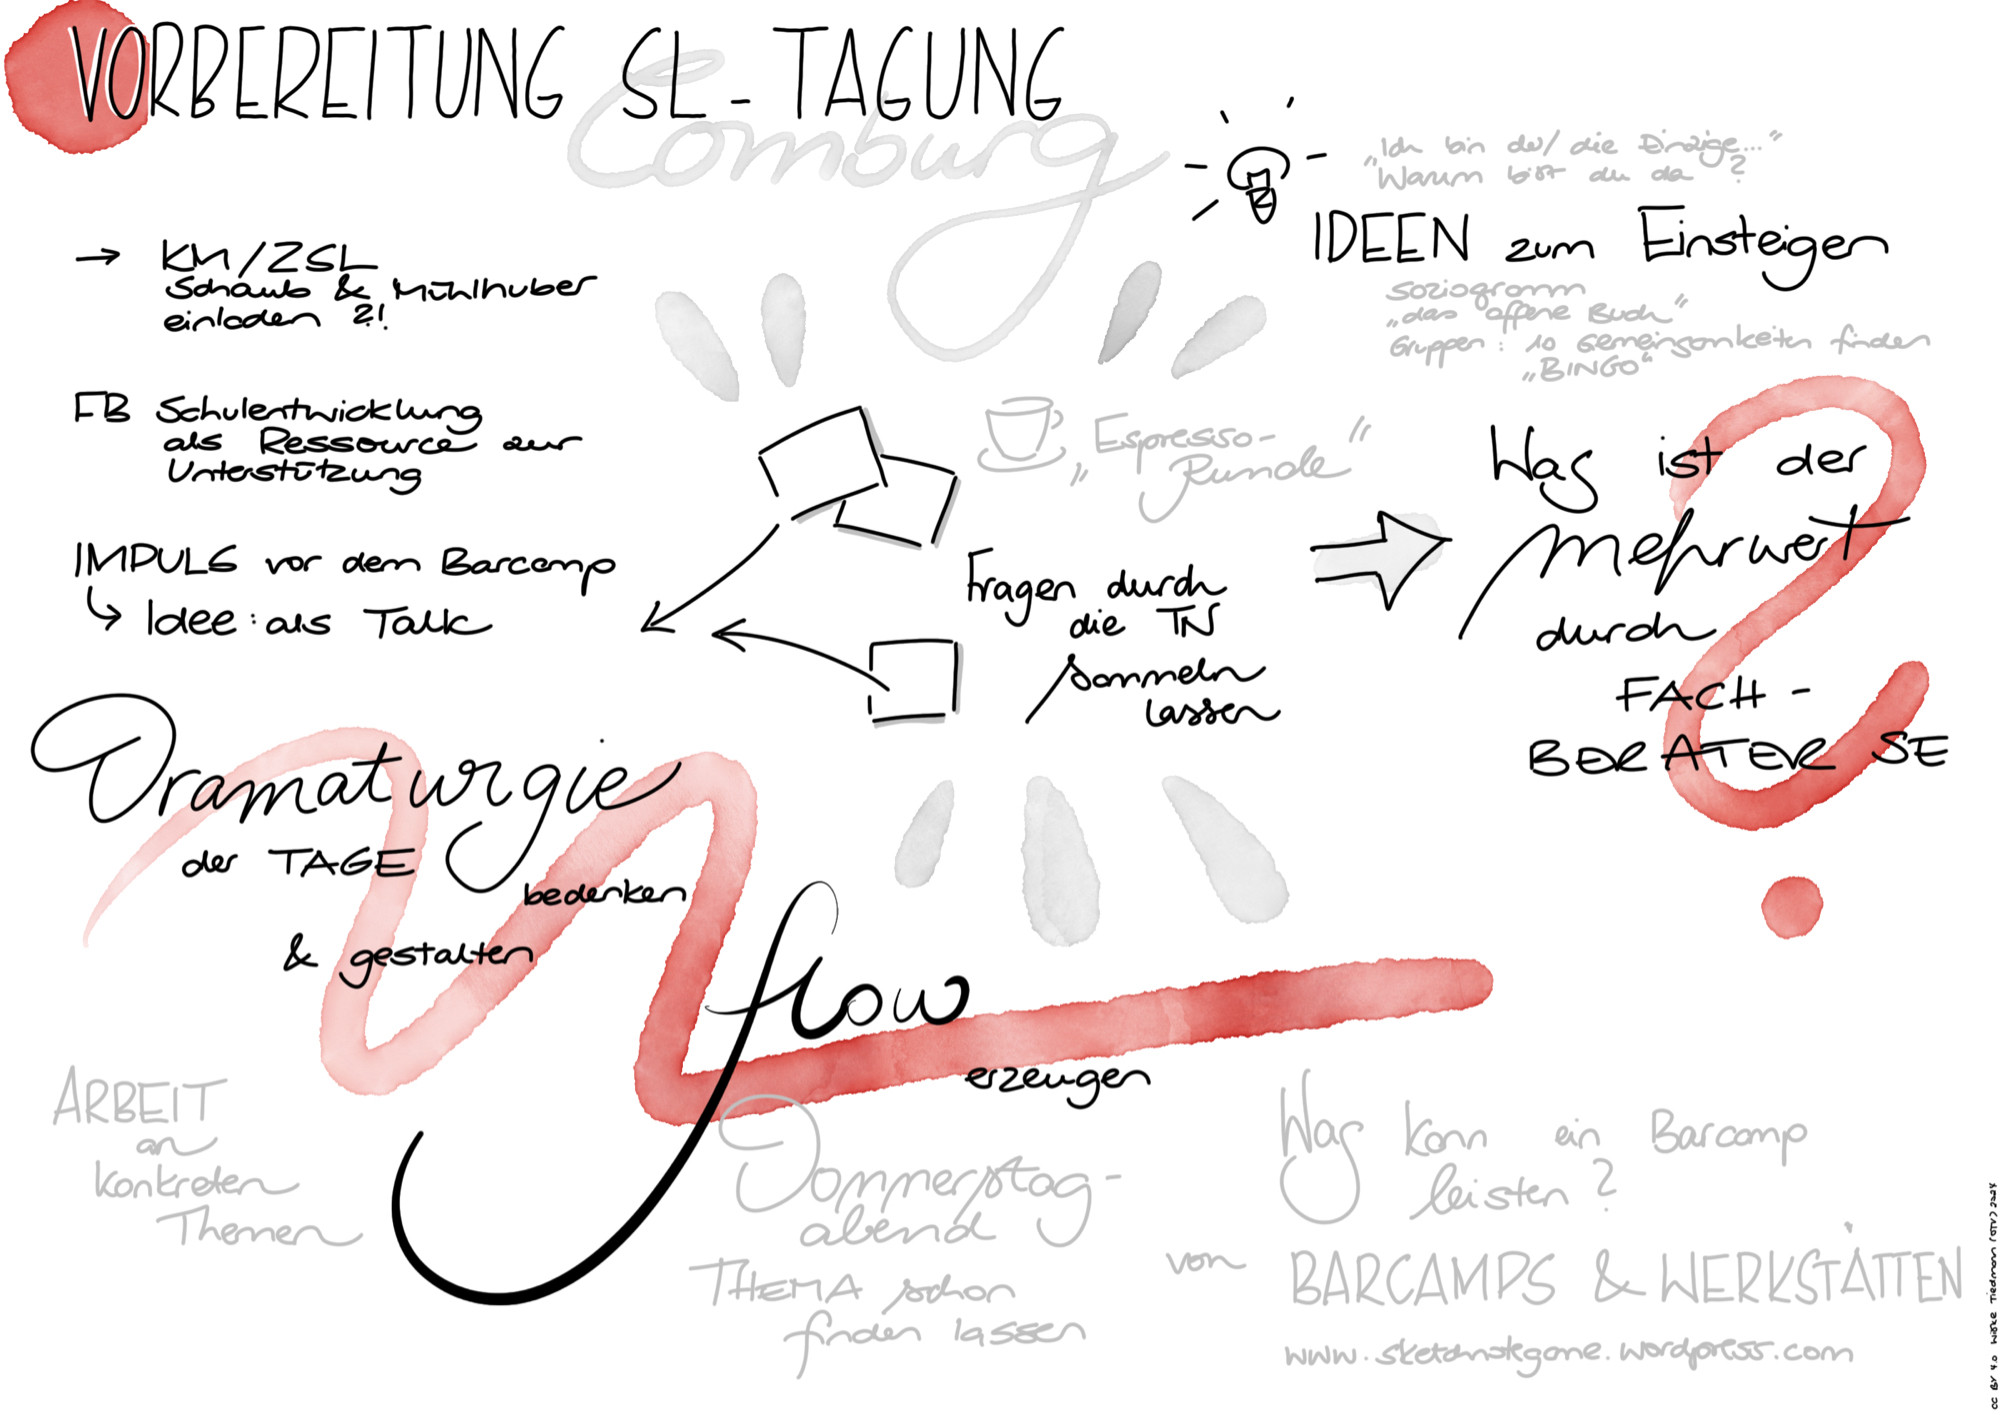 VORBEREITUNG SL-TAGUNG
Comburg
→ KM/ZSL
Schaub & Mühlhuber
einladen ?!
FB Schulentwicklung
als Ressource zur
Unterstützung
IMPULS vor dem Barcamp
↳ Idee: als Talk
„Ich bin der/die Einzige..."
Warum bist du da?
IDEEN zum Einsteigen
Soziogramm
„das offene Buch"
Gruppen: 10 Gemeinsamkeiten finden
„BINGO"
„Espresso-
Runde"
Fragen durch
die TN
sammeln
lassen
Was ist der
Mehrwert
durch
FACH-
BERATER SE
Dramaturgie
der TAGE
bedenken
& gestalten
flow
erzeugen
ARBEIT
an
konkreten
Themen
Donnerstag-
abend
THEMA schon
finden lassen
Was kann ein Barcamp
leisten?
von BARCAMPS & WERKSTÄTTEN
www.sketchnotegame.wordpress.com
CC BY 4.0 Wibke Tiedmann